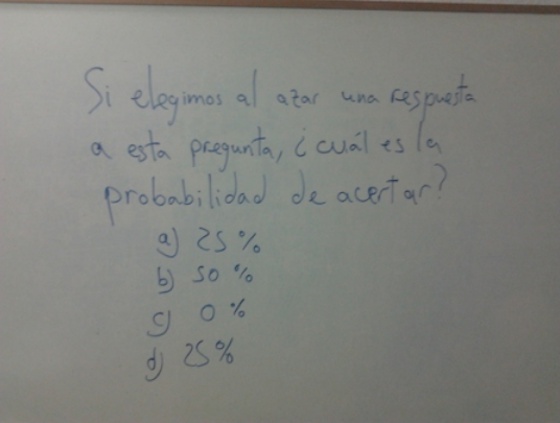 Si elegimos al azar una respuesta
a esta pregunta, ¿cuál es la
probabilidad de acertar?
a) 25%
b) 50%
c) 0%
d) 25%